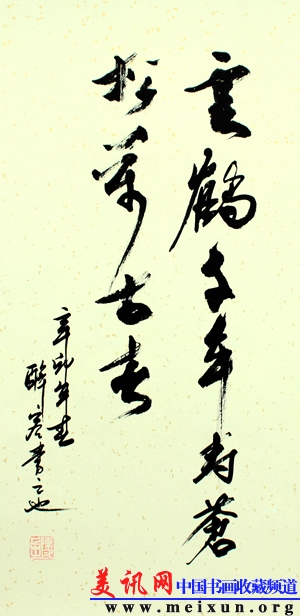 雲鶴千年壽蒼
松萬古春
辛卯年春
醉容書之也
美讯网 中国书画收藏频道
www.meixun.org